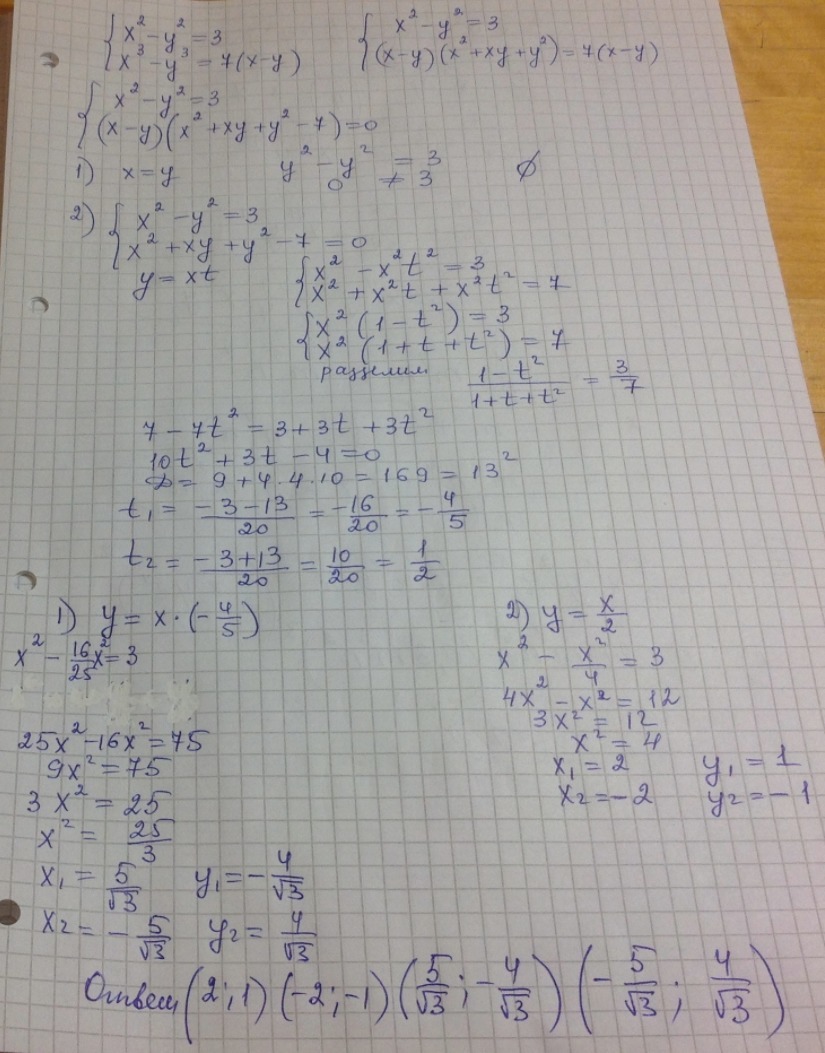 { x² - y² = 3
x³ - y³ = 7(x-y)
{ x² - y² = 3
(x-y)(x² + xy + y²) = 7(x-y)
{ x² - y² = 3
(x-y)(x² + xy + y² - 7) = 0
1) x = y y² - y² = 3 ∅
0 ≠ 3
2) { x² - y² = 3
x² + xy + y² - 7 = 0
y = xt
{ x² - x²t² = 3
x² + x²t + x²t² = 7
{ x²(1 - t²) = 3
x²(1 + t + t²) = 7
разделим (1 - t²)/(1 + t + t²) = 3/7
7 - 7t² = 3 + 3t + 3t²
10t² + 3t - 4 = 0
D = 9 + 4·4·10 = 169 = 13²
t₁ = (-3-13)/20 = -16/20 = -4/5
t₂ = (-3+13)/20 = 10/20 = 1/2
1) y = x·(-4/5)
x² - 16/25 x² = 3
25x² - 16x² = 75
9x² = 75
3x² = 25
x² = 25/3
x₁ = 5/√3 y₁ = -4/√3
x₂ = -5/√3 y₂ = 4/√3
2) y = x/2
x² - x²/4 = 3
4x² - x² = 12
3x² = 12
x² = 4
x₁ = 2 y₁ = 1
x₂ = -2 y₂ = -1
Ответ (2; 1) (-2; -1) (5/√3; -4/√3) (-5/√3; 4/√3)